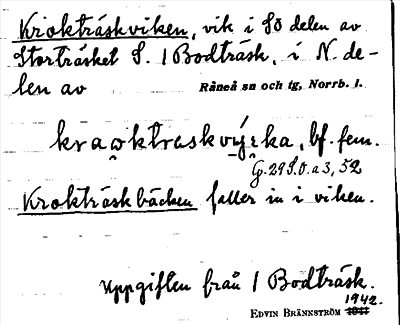 Krokträskviken, vik i SO delen av
Storträsket S. 1 Bodträsk, i N. de-
len av Råneå sn och tg, Norrb. l.
bf. fem.
Krokträskbäcken faller in i viken.
uppgiften från 1 Bodträsk.
1942.
EDVIN BRÄNNSTRÖM 1941